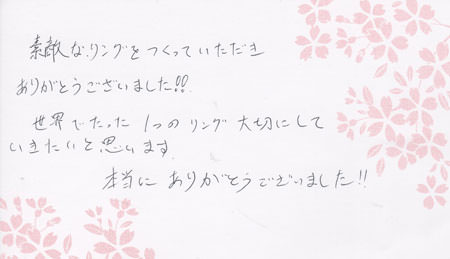 素敵なリングをつくっていただき
ありがとうございました!!
世界でたった1つのリング大切にして
いきたいと思います。
本当にありがとうございました!!